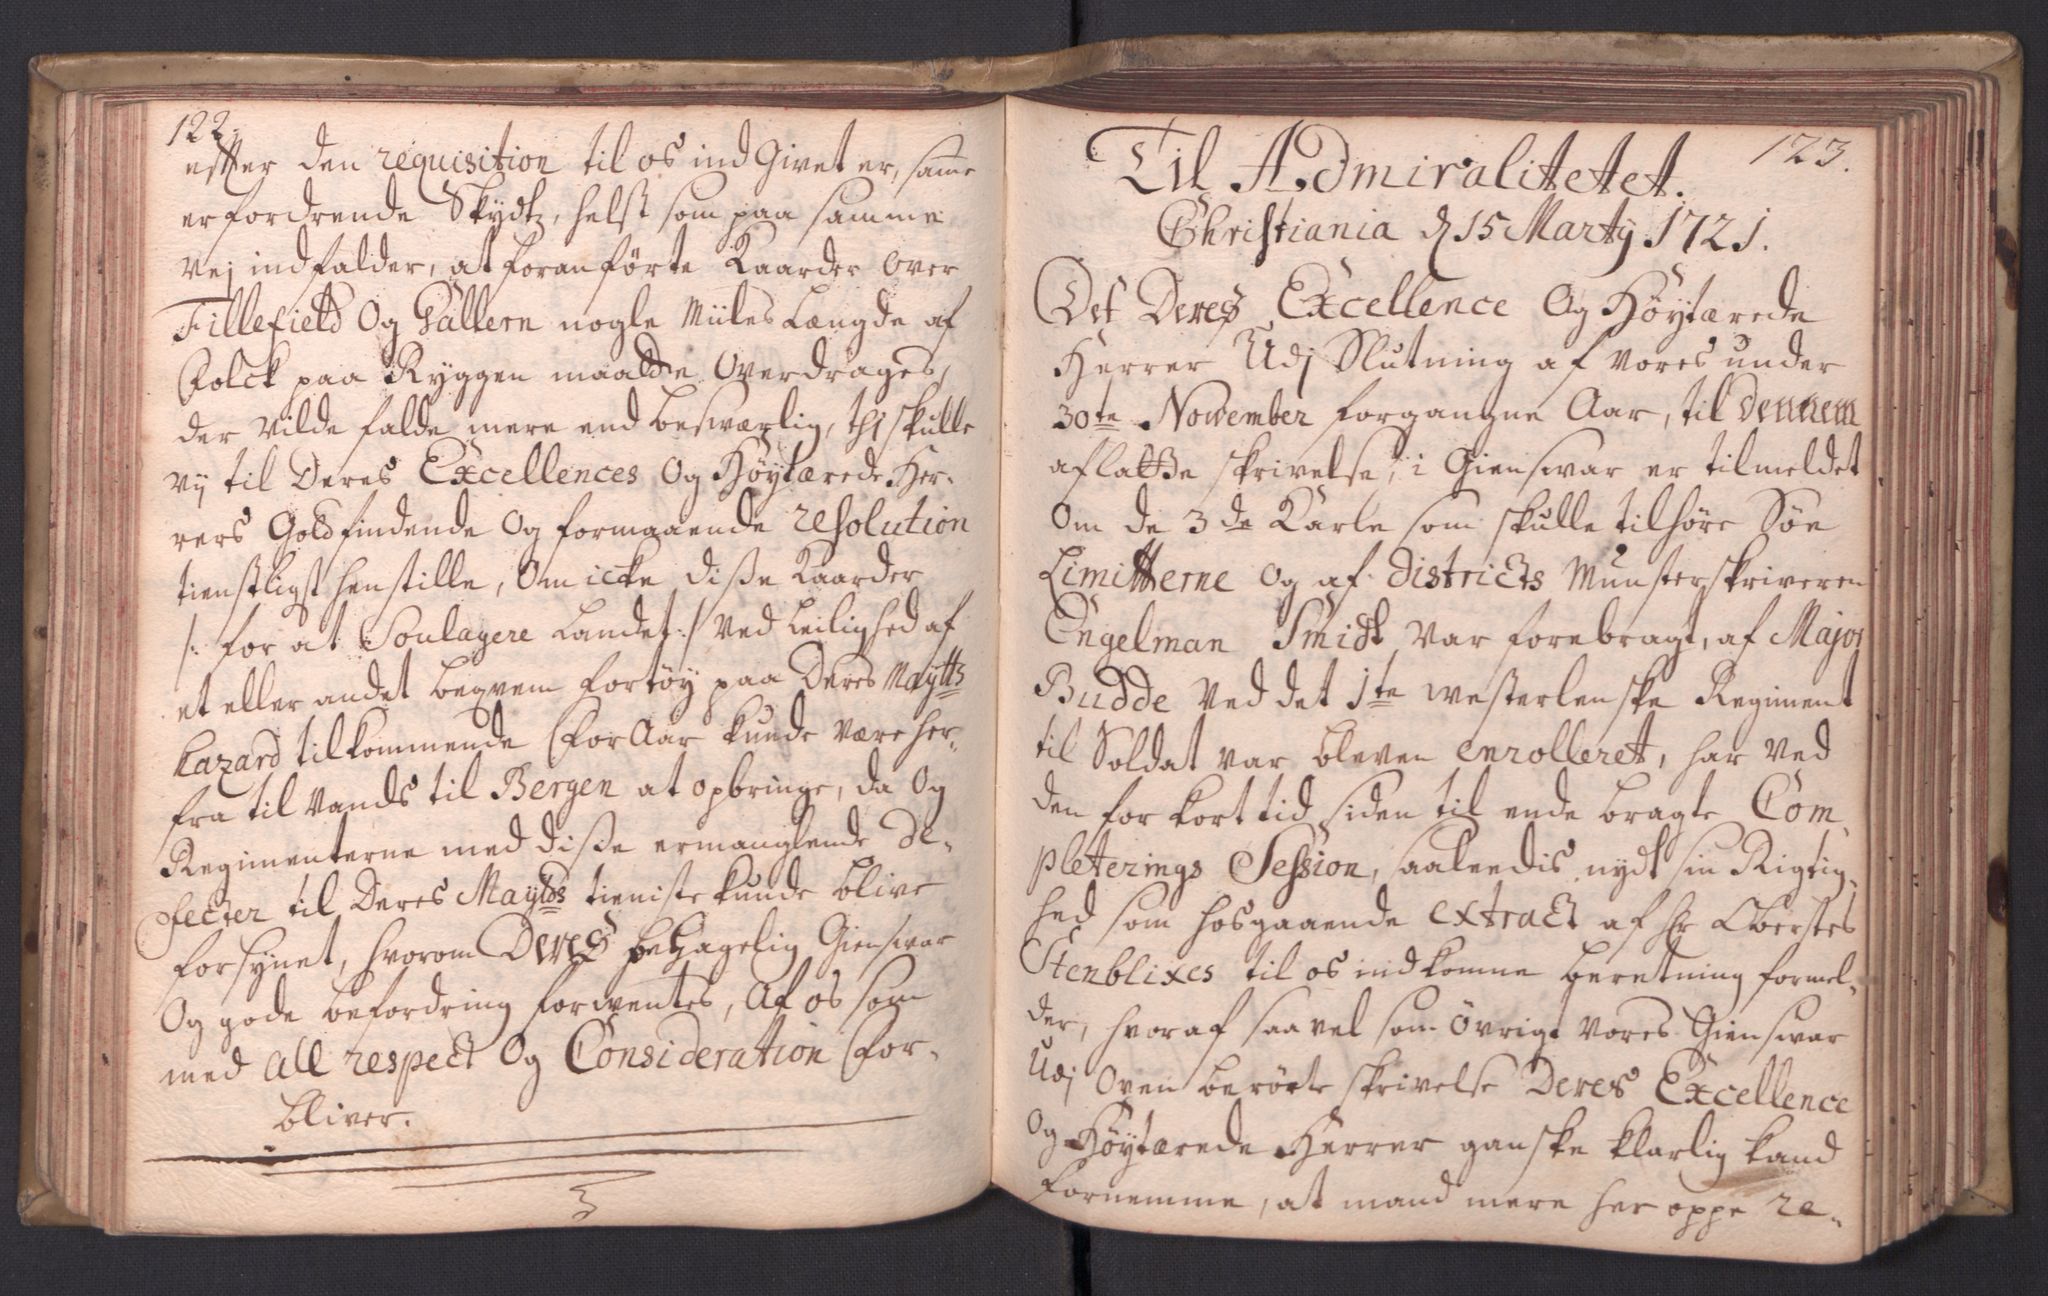 122.
effter den requisition til os ind Givet er, samme
erfordrende Skydtz, helst som paa samme
Vej indfalder, at foranförte Kaarder over
Fillefield Og Gallern nogle Miiles Længde af
Folck paa Ryggen maatte Overdrages,
der vilde falde mere end besværlig, thi skulle
vij til Deres Excellences Og Höytærede Her-
rers Godfindende Og formaaende resolution
tienstligst henstille, Om icke disse Kaarder
/: for at Soulagere Landet :/ ved Leilighed af
et eller andet beqvem fortöy paa Deres Maytts
hazard tilkommende For Aar kunde være her-
fra til Vands til Bergen at opbringe, da Og
Regimenterne med disse ermanglende De-
fecter til Deres Maytts tieniste kunde blive
forsynet, hvorom Deres behagelig Giensvar
Og gode befordring forventes, Af os som
med all respect Og Consideration For-
bliver.
123.
Til Admiralitetet.
Christiania d 15 Marty 1721.
Det Deres Excellence Og Höytærede
Herrer Udj Slutning af Vores under
30te November forgangne Aar, til dennem
aflatte skrivelse, i Giensvar er tilmeldet
Om de 3de Karle som skulle tilhöre Söe
Limitterne Og af districts Munsterskriveren
Engelman Smidt var forebragt, af Major
Budde Ved det 1te Westerlenske Regiment
til Soldat var bleven enrolleret, har Ved
den for kort tid siden til ende bragte Com
pleterings Session, saaleedis nydt sin Rigtig-
hed som hosgaaende extract af hr Oberstes
Stenblixes til os indkomne beretning formel-
der, hvoraf saavel som övrigt Vores Giensvar
Udj Oven berörte skrivelse Deres Excellence
Og Höytærede Herrer ganske klarlig kand
fornemme, at mand mere her oppe re-